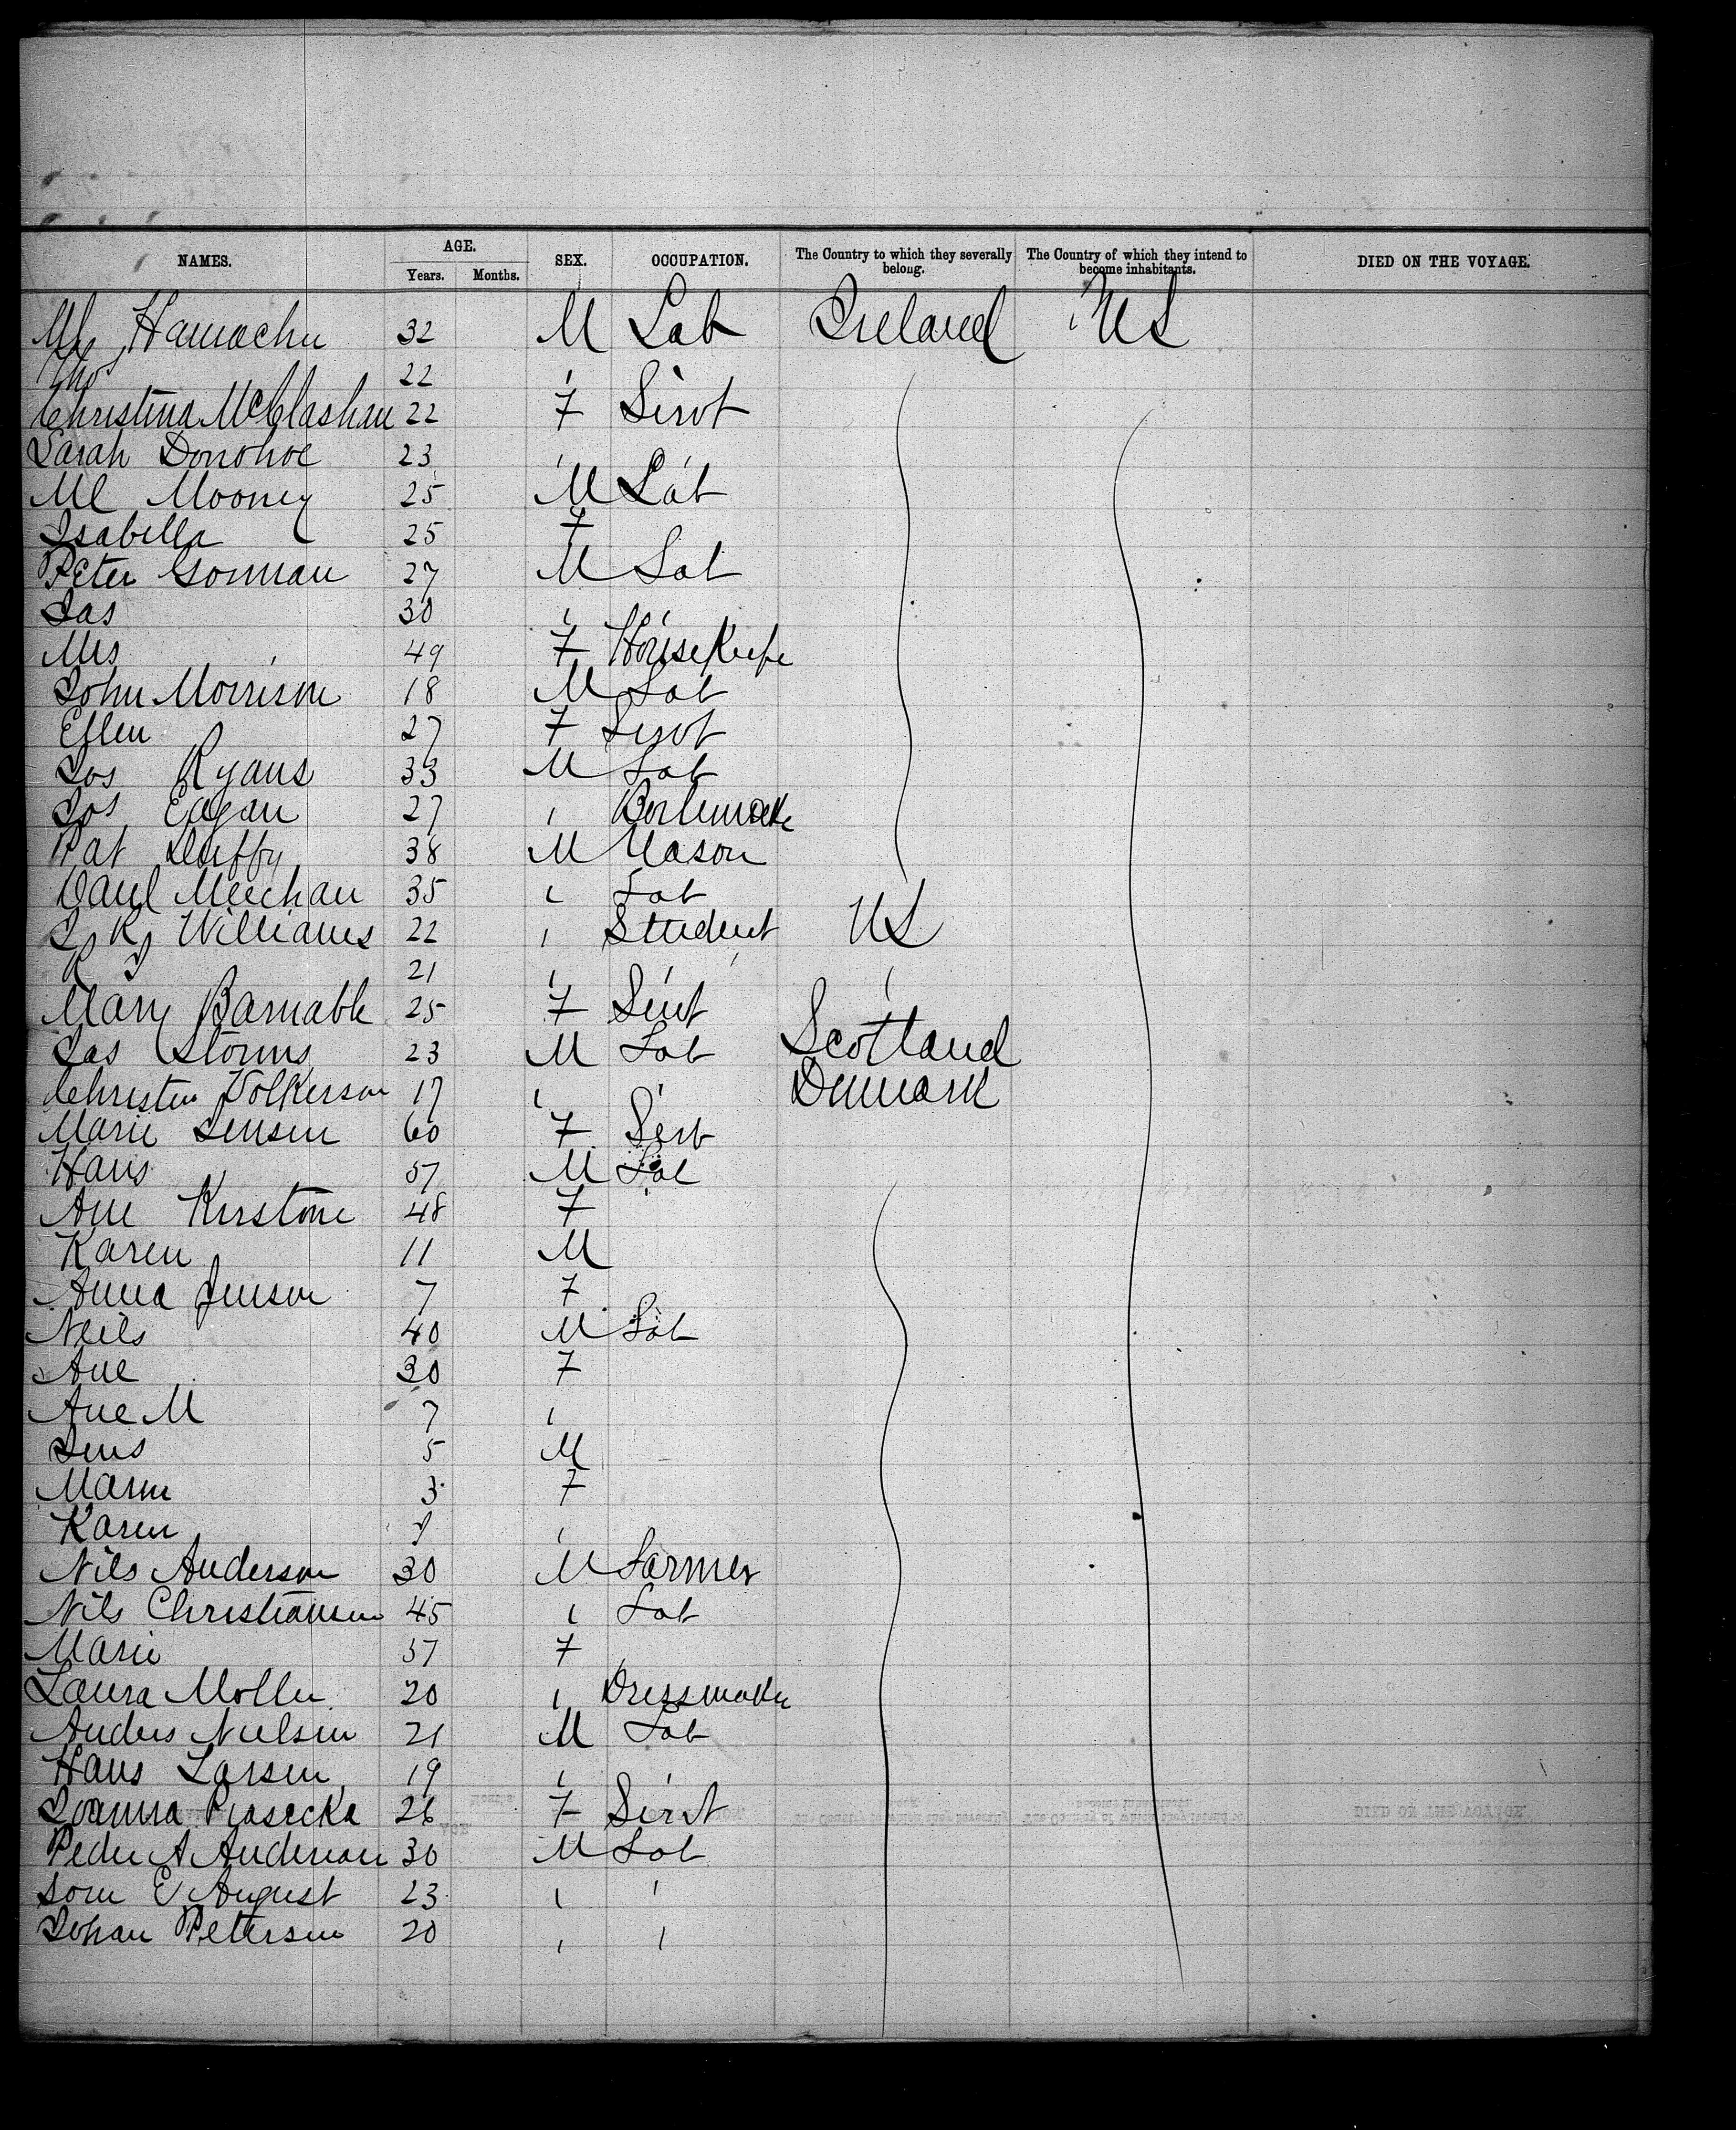 NAMES. AGE. SEX. OCCUPATION. The Country to which they severally belong. The Country of which they intend to become inhabitants. DIED ON THE VOYAGE.
Years. Months.
Ml Hamachu 32 M Lab Ireland US
Tho 22 "
Christina McGlashan 22 F Sirvt
Sarah Donohoe 23 " "
Ml Mooney 25 M Lab
Isabella 25 F
Peter Gorman 27 M Lab
Jas 30 " "
Mrs " 49 F HouseKeepe
John Morrison 18 M Lab
Ellen 27 F Servt
Jos Ryans 33 M Lab
Jos Eagan 27 "
Pat Duffy 38 M Mason
Danl Meechan 35 " Lab
J. R. Williams 22 " Student US
R J 21 " " "
Mary Barnable 25 F Sevt
Jas Storms 23 M Lab Scotland
Christen Volkerson 17 " " Denmark
Marie Jensen 60 F Serv
Hans 57 M Lab
Ane Kirstone 48 F
Karen 11 M
Anna Jenson 7 F
Neils 40 M Lab
Ane 30 F
Ane M 7 "
Jens 5 M
Maren 3 F
Karen "
Nils Anderson 30 M Farmer
Nils Christiansen 45 " Lab
Marie 37 F
Laura Moller 20 " Dressmaker
Anders Nielsen 21 M Lab
Hans Larsen 19 " "
Joanna Piasecka 26 F Servt
Peder A Anderson 30 M Lab
Sorn E August 23 " "
Johan Petersen 20 " "